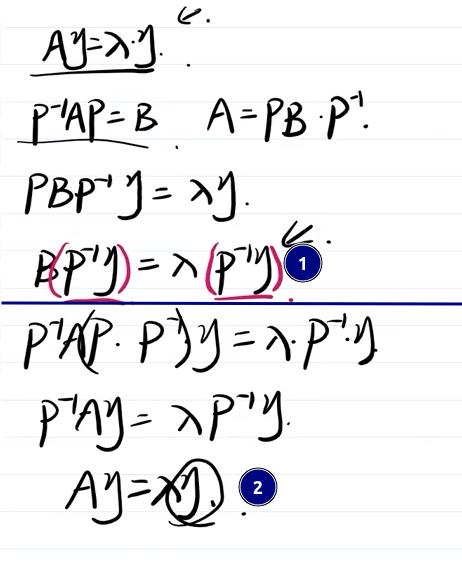 Ay=λ·y.
P⁻¹AP=B A=PB·P⁻¹.
PBP⁻¹y=λy.
B(P⁻¹y)=λ(P⁻¹y) 1
P⁻¹A(P·P⁻¹)y=λ·P⁻¹·y
P⁻¹Ay=λP⁻¹y.
Ay=λy. 2